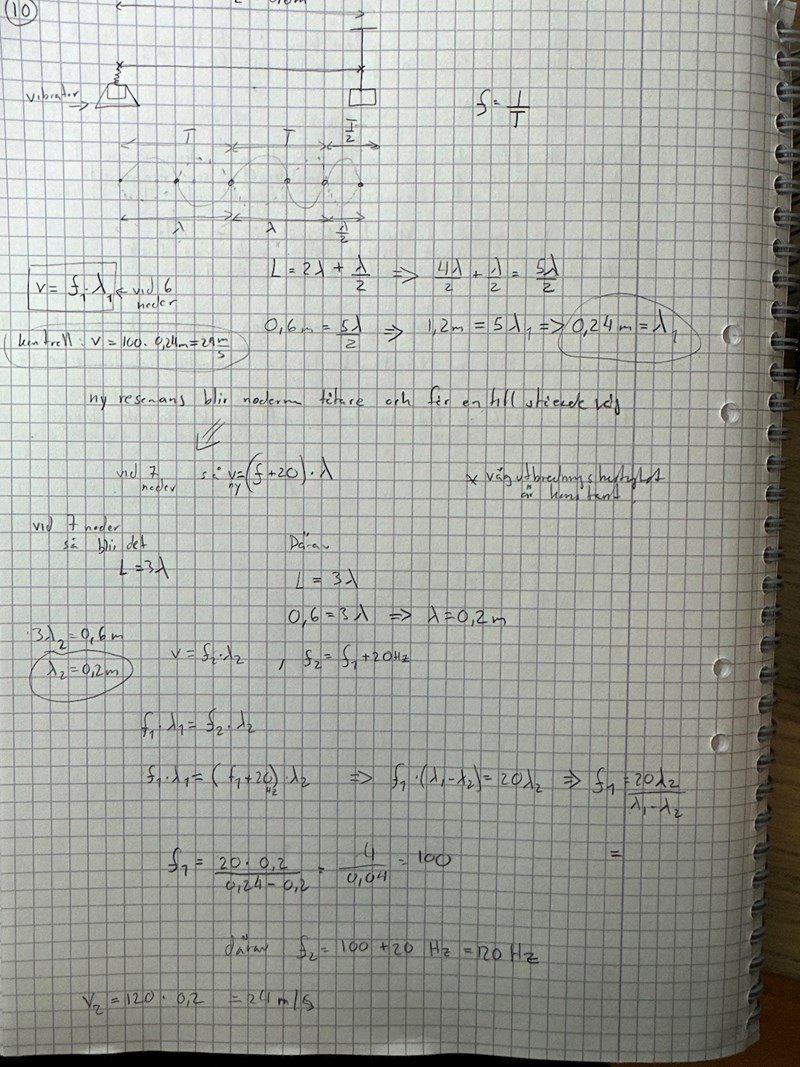 10
vibrator
f = 1/T
T T T/2
λ λ λ/2
v = f₁·λ₁ ← vid 6 noder
L = 2λ + λ/2 ⇒ 4λ/2 + λ/2 = 5λ/2
kontroll: v = 100 · 0,24m = 24 m/s
0,6m = 5λ/2 ⇒ 1,2m = 5λ₁ ⇒ 0,24m = λ₁
ny resonans blir noderna tätare och får en till stående våg
vid 7 noder så v_ny = (f+20)·λ
x vågutbredningshastighet
är konstant
vid 7 noder
så blir det
L = 3λ
Därav
L = 3λ
0,6 = 3λ ⇒ λ = 0,2m
3λ₂ = 0,6m
λ₂ = 0,2m
v = f₂·λ₂ , f₂ = f₁ + 20Hz
f₁·λ₁ = f₂·λ₂
f₁·λ₁ = (f₁+20)·λ₂ ⇒ f₁·(λ₁-λ₂) = 20λ₂ ⇒ f₁ = 20λ₂/(λ₁-λ₂)
Hz
=
f₁ = 20·0,2/(0,24-0,2) = 4/0,04 = 100
därav f₂ = 100 + 20 Hz = 120 Hz
v₂ = 120 · 0,2 = 24 m/s